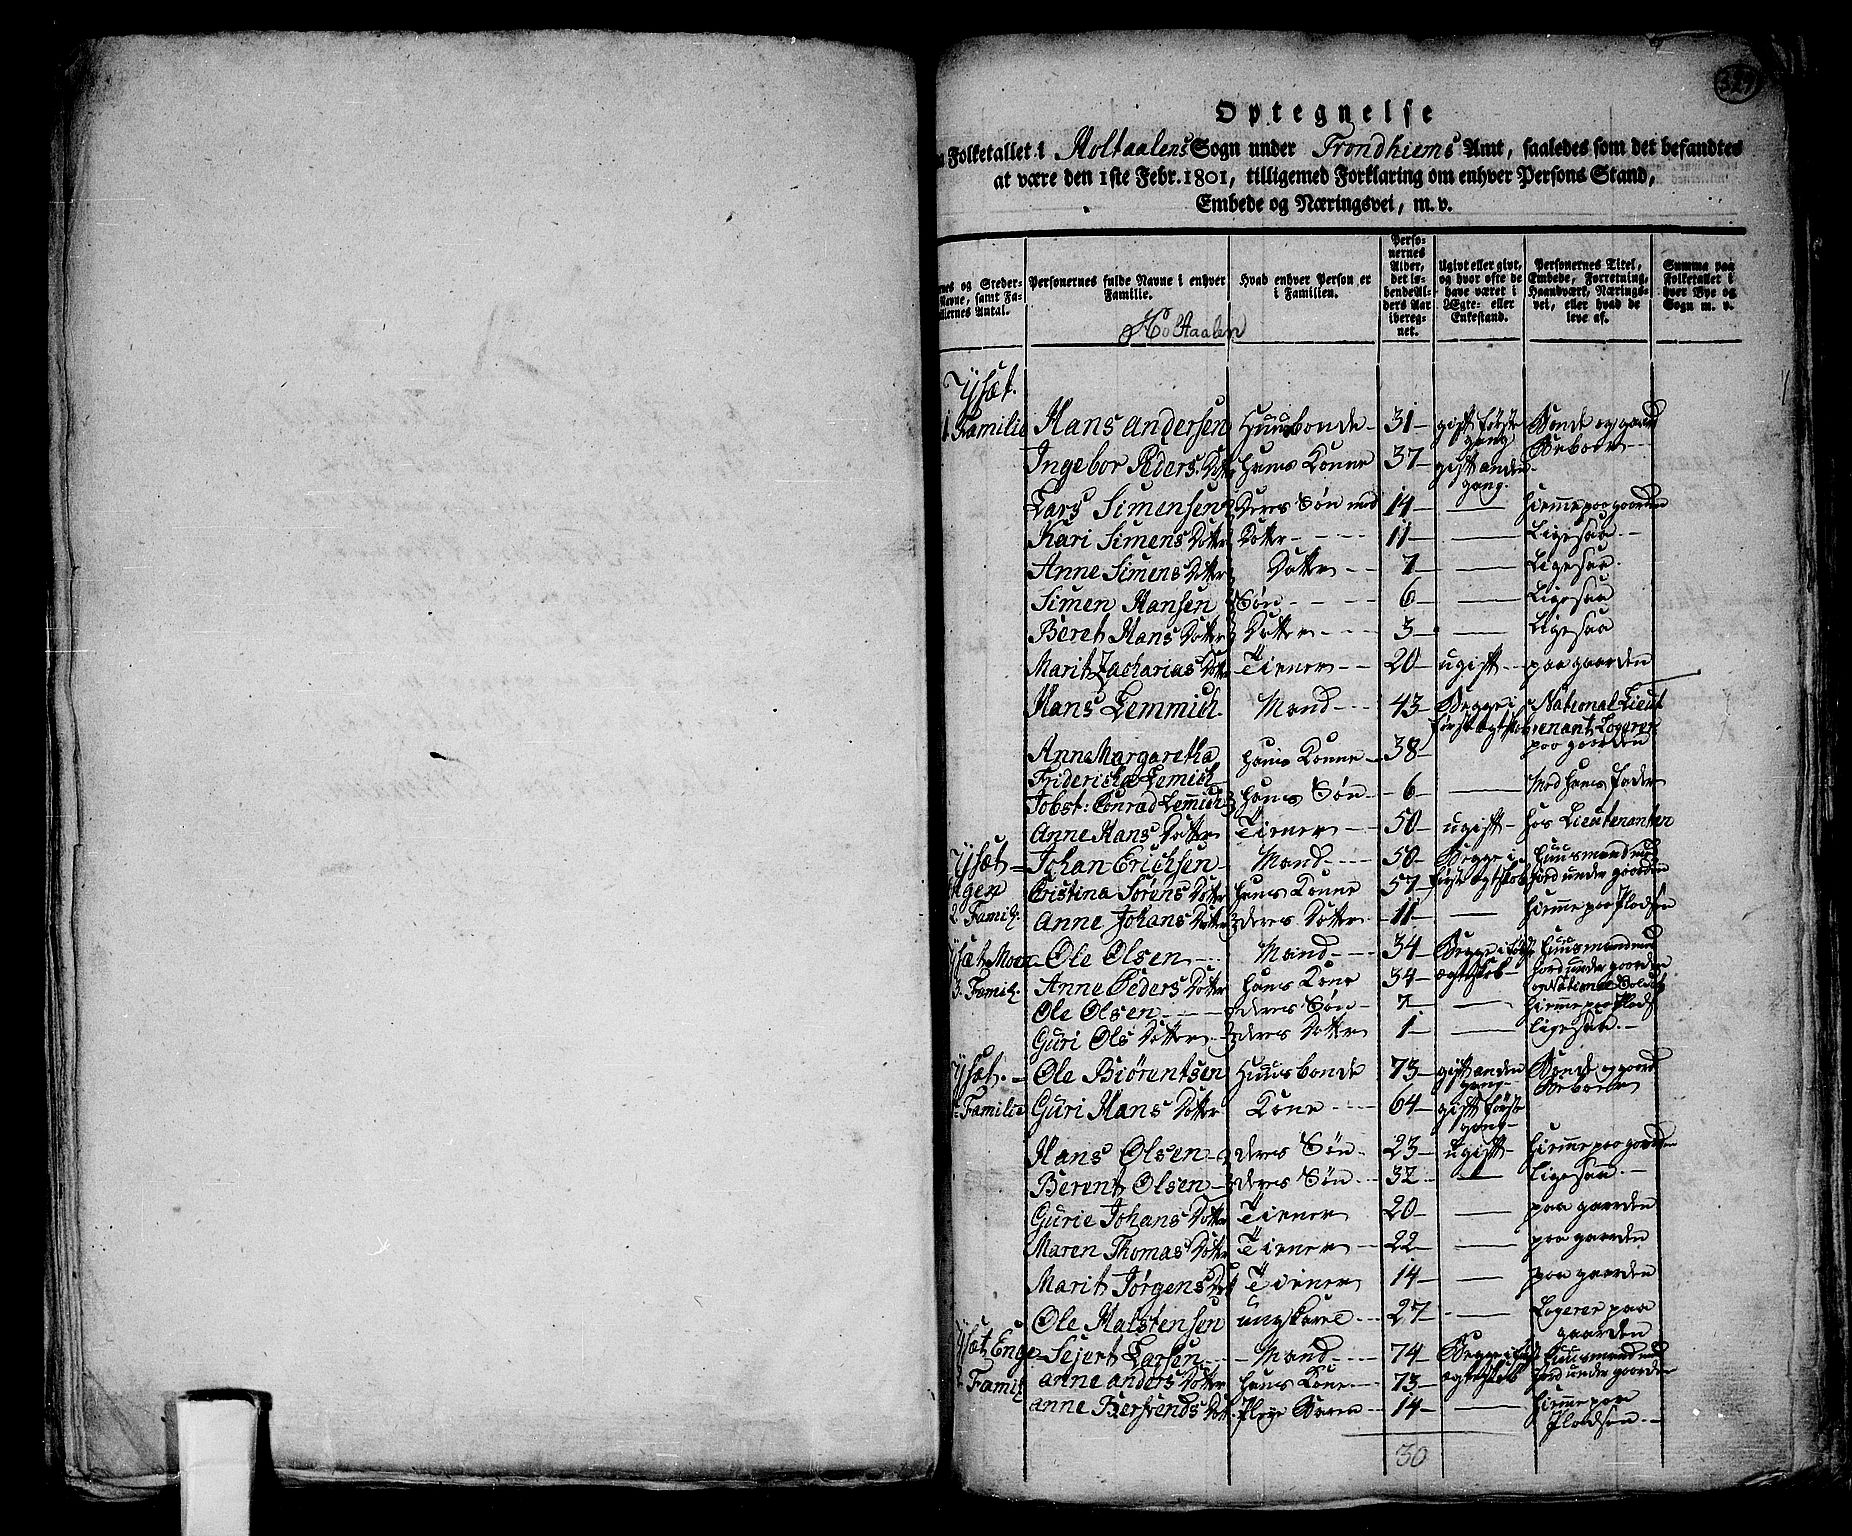 Optegnelse
Folketallet i Holtaalens Sogn under Trondhiems Amt, saaledes som det befandtes
at være den 1ste Febr. 1801, tilligemed Forklaring om enhver Persons Stand,
Embede og Næringsvei, m. v.
og Steder-
Navne, samt Fa-
miliernes Antal.
Personernes fulde Navne i enhver
Familie.
Hvad enhver Person er
i Familien.
Perso-
nernes
Alder,
det lø-
bende Al-
ders Aar
ibereg-
net.
Ugivt eller givt,
og hvor ofte de
have været i
Egte- eller
Enkestand.
Personernes Titel,
Embede, Forretning,
Haandværk, Nærings-
vei, eller hvad de
leve af.
Summa paa
Folketallet i
hver Bye og
Sogn m. v.
Holtaalen
Ysæt.
1 Familie Hans Andersen Huusbonde 31 gift første gang Bonde og gaard Beboer
Ingebor Peders Dotter hans Konne 37 gift anden gang.
Lars Simensen Deres Søn 14 — hiemme paa gaarden
Kari Simens Dotter Dotter 11 — Ligesaa
Anne Simens Dotter Dotter 7 — Ligesaa
Simen Hansen Søn 6 — Ligesaa
Beret Hans Dotter Dotter 3 — Ligesaa
Marit Zacharias Dotter Tiener 20 ugift paa gaarden
Hans Lemmich Mand 43 Begge i første Egtskab National Lieutenant Logerer paa gaarden
Anne Margaretha Fridericha Lemich hans Konne 38
Jobst: Conrad Lemmich hans Søn 6 — Med hans Fader
Anne Hans Dotter Tiener 50 ugift hos Lieutenanten
Ysæt Johan Erichsen Mand 50 Begge i første Egtskab Huusmand med Jord under gaarden
2 Famil. Cristina Sørens Dotter hans Konne 57
Anne Johans Dotter deres Dotter 11 — hiemme paa Pladsen
Ysæt Moen Ole Olsen Mand 34 Begge i første Egteskab Huusmand med Jord under gaarden og National Soldat
3. Famil. Anne Peders Dotter hans Kone 34
Ole Olsen deres Søn 7 — hiemme paa Plads
Guri Ols Dotter deres Dotter 1 — ligesaa
Ysæt. Ole Biørentsen Huusbonde 73 gift anden gang Bonde og gaard Beboer
Familie Guri Hans Dotter Kone 64 gift første gang
Hans Olsen deres Søn 23 ugift hiemme paa gaarden
Berent Olsen deres Søn 32 — ligesaa
Gurie Johans Dotter Tiener 20 — paa gaarden
Maren Thomas Dotter Tiener 22 — paa gaarden
Marit Jørgens Dot Tiener 14 — paa gaarden
Ole Halstensen ungkarel 27 — Logerer paa gaarden
Ysæt Enge Sejert Larsen Mand 74 Begge i første Egteskab Huusmand med Jord under gaarden
Famil Anne Anders Dotter hans Kone 73
Anne Bersvends Dot. Pleje Barn 14 — hiemme paa Pladsen
30